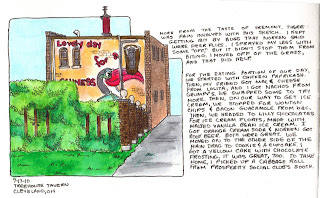 Lovely day
for a
GUINNESS
MORE FROM THE TASTE OF TREMONT. THERE
WAS PAIN INVOLVED WITH THIS SKETCH. I KEPT
GETTING BIT BY BUGS THAT NOREEN SAID
WERE DEER FLIES. I SPRAYED MY LEGS WITH
SOME "OFF," BUT IT DIDN'T STOP THEM FROM
BITING. I MOVED OFF OF THE GRASS,
AND THAT DID HELP.
FOR THE EATING PORTION OF OUR DAY,
WE STARTED WITH CHICKEN PAPRIKASH.
THEN MY FRIED & CHEESE
FROM LOLITA, AND I GOT NACHOS FROM
GRUMPY'S. WE SWAPPED SOME TO TRY
MORE. THEN, ON OUR WAY TO GET ICE
CREAM, WE STOPPED FOR WONTON
CHIPS & BACON GUACAMOLE FROM
THEN, WE HEADED TO LILLY CHOCOLATES
FOR ICE CREAM FLOATS, MADE WITH
MALTED VANILLA BEAN ICE CREAM. I
GOT ORANGE CREAM SODA & NOREEN GOT
ROOT BEER. BOTH WERE GREAT. WE
MOVED ON TO THE OTHER SIDE OF THE
MAIN DRAG TO COOKIE & A CUPCAKE. I
GOT A YELLOW CAKE WITH CHOCOLATE
FROSTING. IT WAS GREAT, TOO. TO TAKE
HOME, I PICKED UP A CABBAGE ROLL
FROM PROSPERITY SOCIAL CLUB'S BOOTH.
TREEHOUSE TAVERN
CLEVELAND, OH